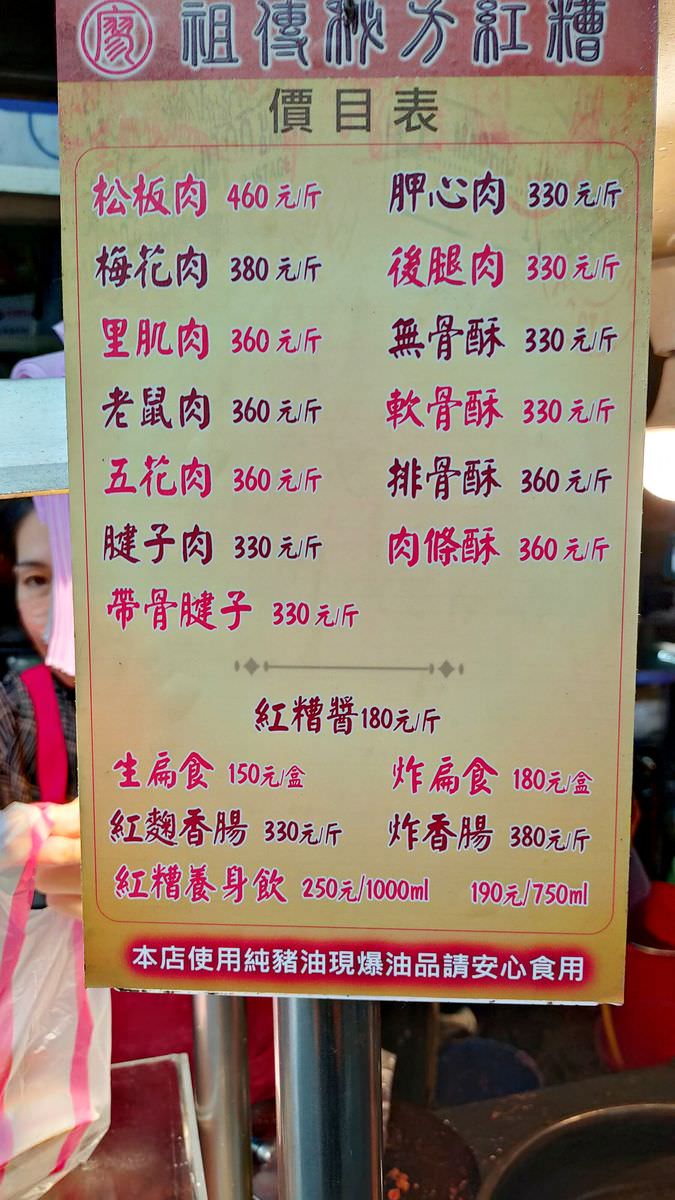 廖 祖傳秘方紅糟
價目表
松板肉 460元/斤 胛心肉 330元/斤
梅花肉 380元/斤 後腿肉 330元/斤
里肌肉 360元/斤 無骨酥 330元/斤
老鼠肉 360元/斤 軟骨酥 330元/斤
五花肉 360元/斤 排骨酥 360元/斤
腱子肉 330元/斤 肉條酥 360元/斤
帶骨腱子 330元/斤
紅糟醬180元/斤
生扁食 150元/盒 炸扁食 180元/盒
紅麴香腸 330元/斤 炸香腸 380元/斤
紅糟養身飲 250元/1000ml 190元/750ml
本店使用純豬油現爆油品請安心食用